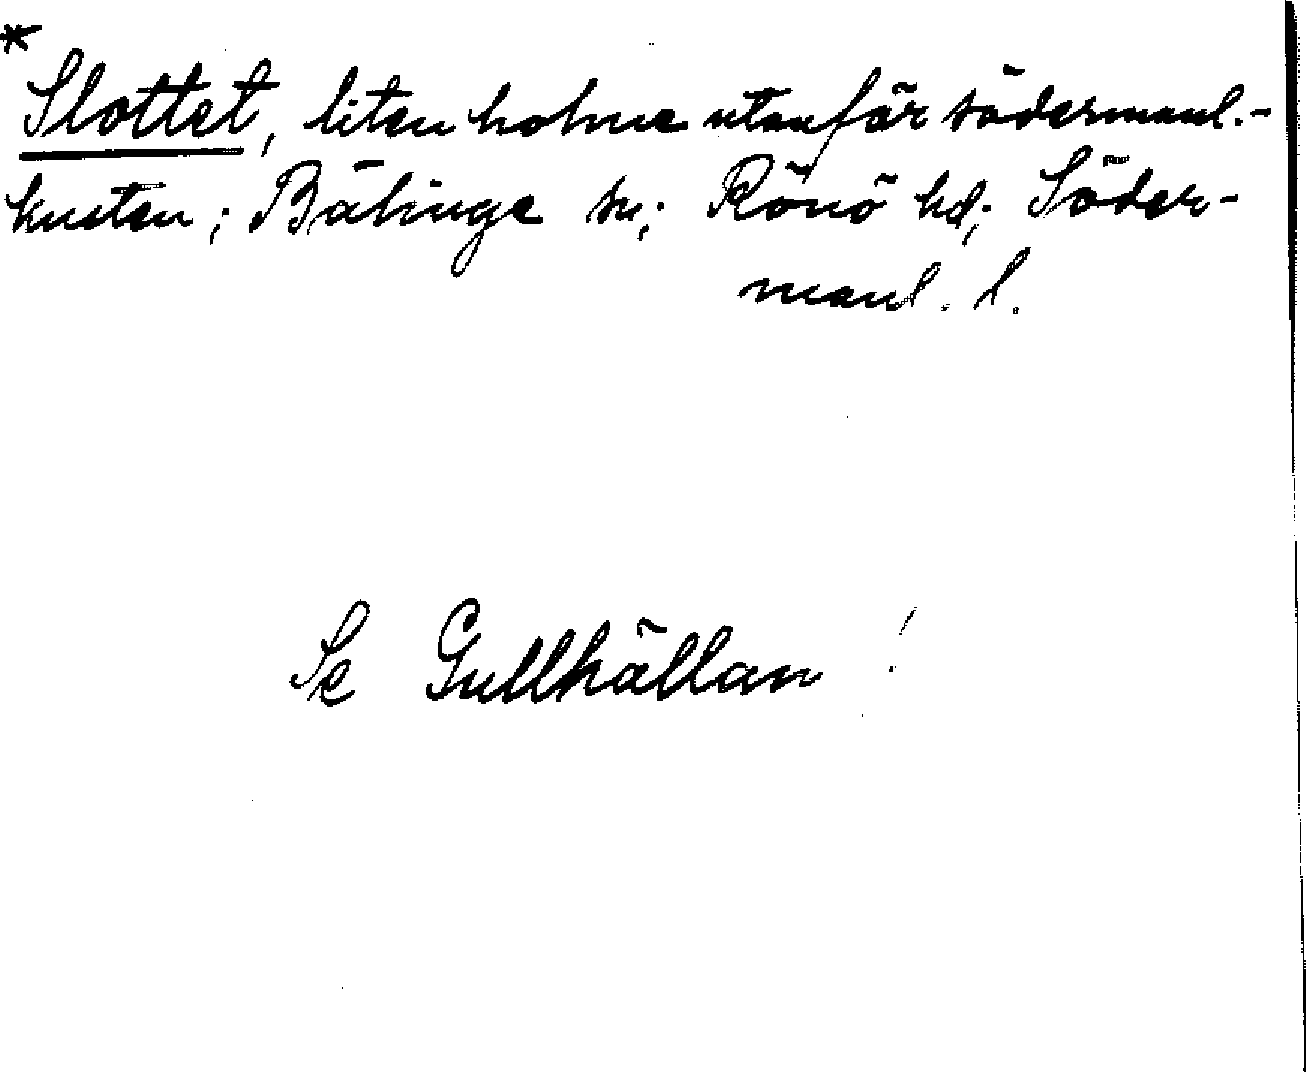 *
Slottet, liten holme utanför södermanl.-
kusten; Bälinge sn; Rönö hd; Söder-
manl. l.
Se Gullhällan!